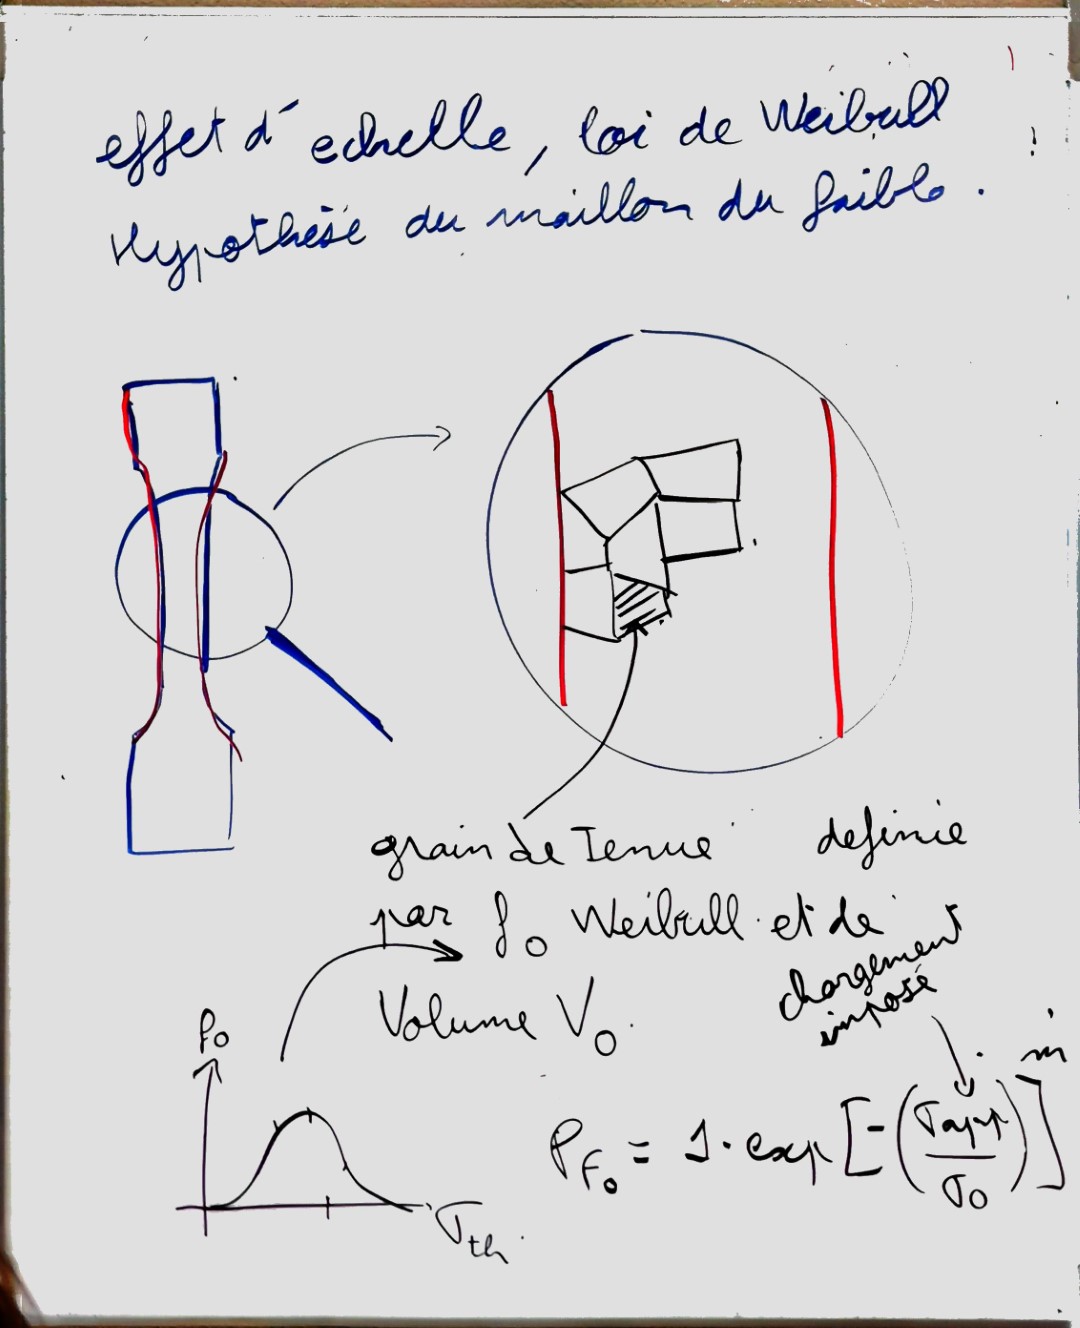 effet d'echelle, loi de Weibull
Hypothèse du maillon du faible.
grain de Tenue definie
par f₀ Weibull et de
chargement
imposé
Volume V₀.
f₀
σth.
P_F₀ = 1 - exp[-(σapp/σ₀)]^m